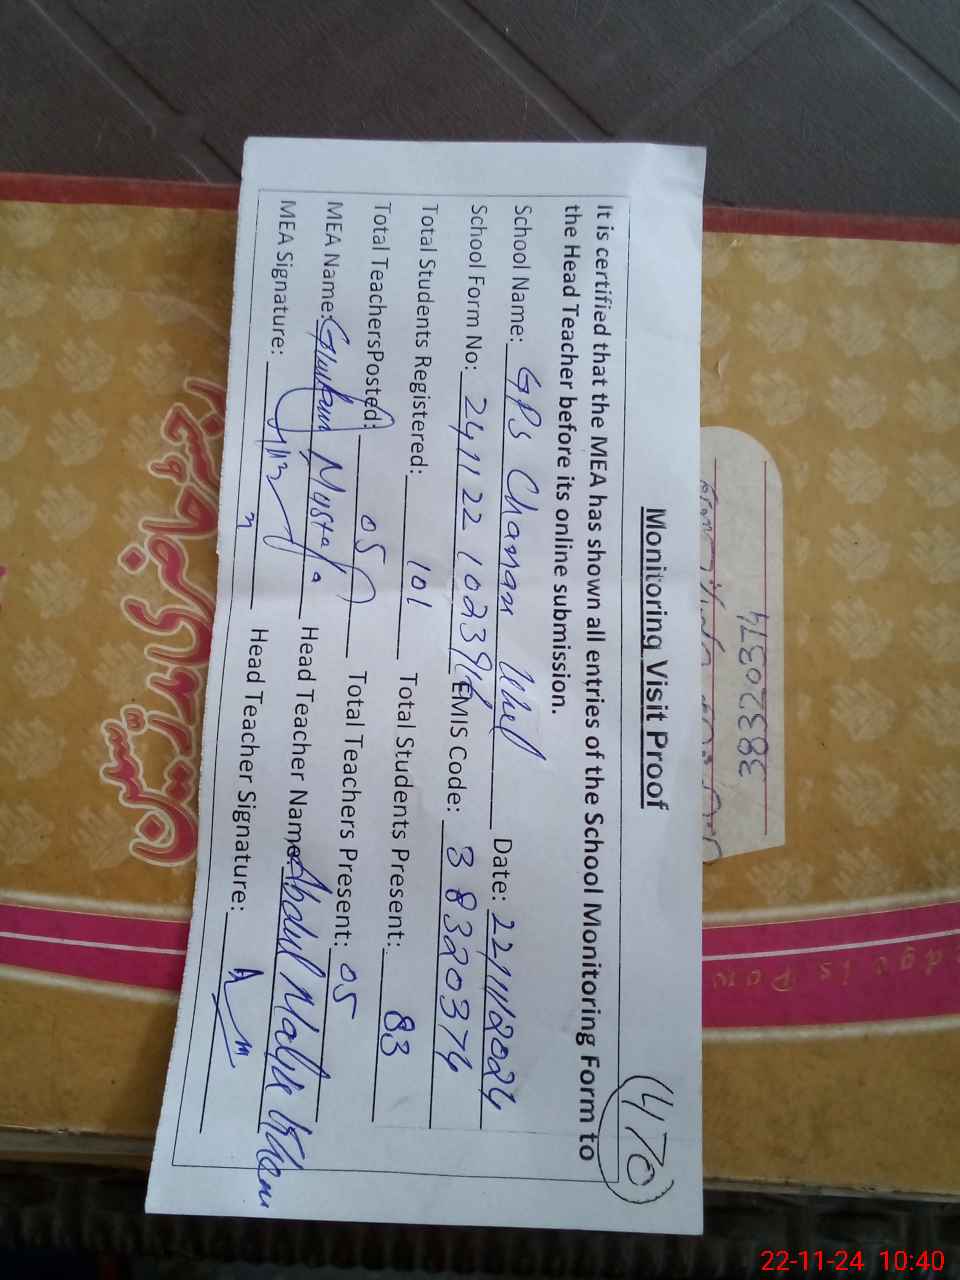 (470)
Monitoring Visit Proof
It is certified that the MEA has shown all entries of the School Monitoring Form to
the Head Teacher before its online submission.
School Name: GPS Chanan Date: 22/11/2024
School Form No: 24112210239 EMIS Code: 38320374
Total Students Registered: 101 Total Students Present: 83
Total TeachersPosted: 05 Total Teachers Present: 05
MEA Name: Ghulam Mustafa Head Teacher Name: Abdul Malik Khan
MEA Signature: Head Teacher Signature:
38320374
dge is Pow
22-11-24 10:40